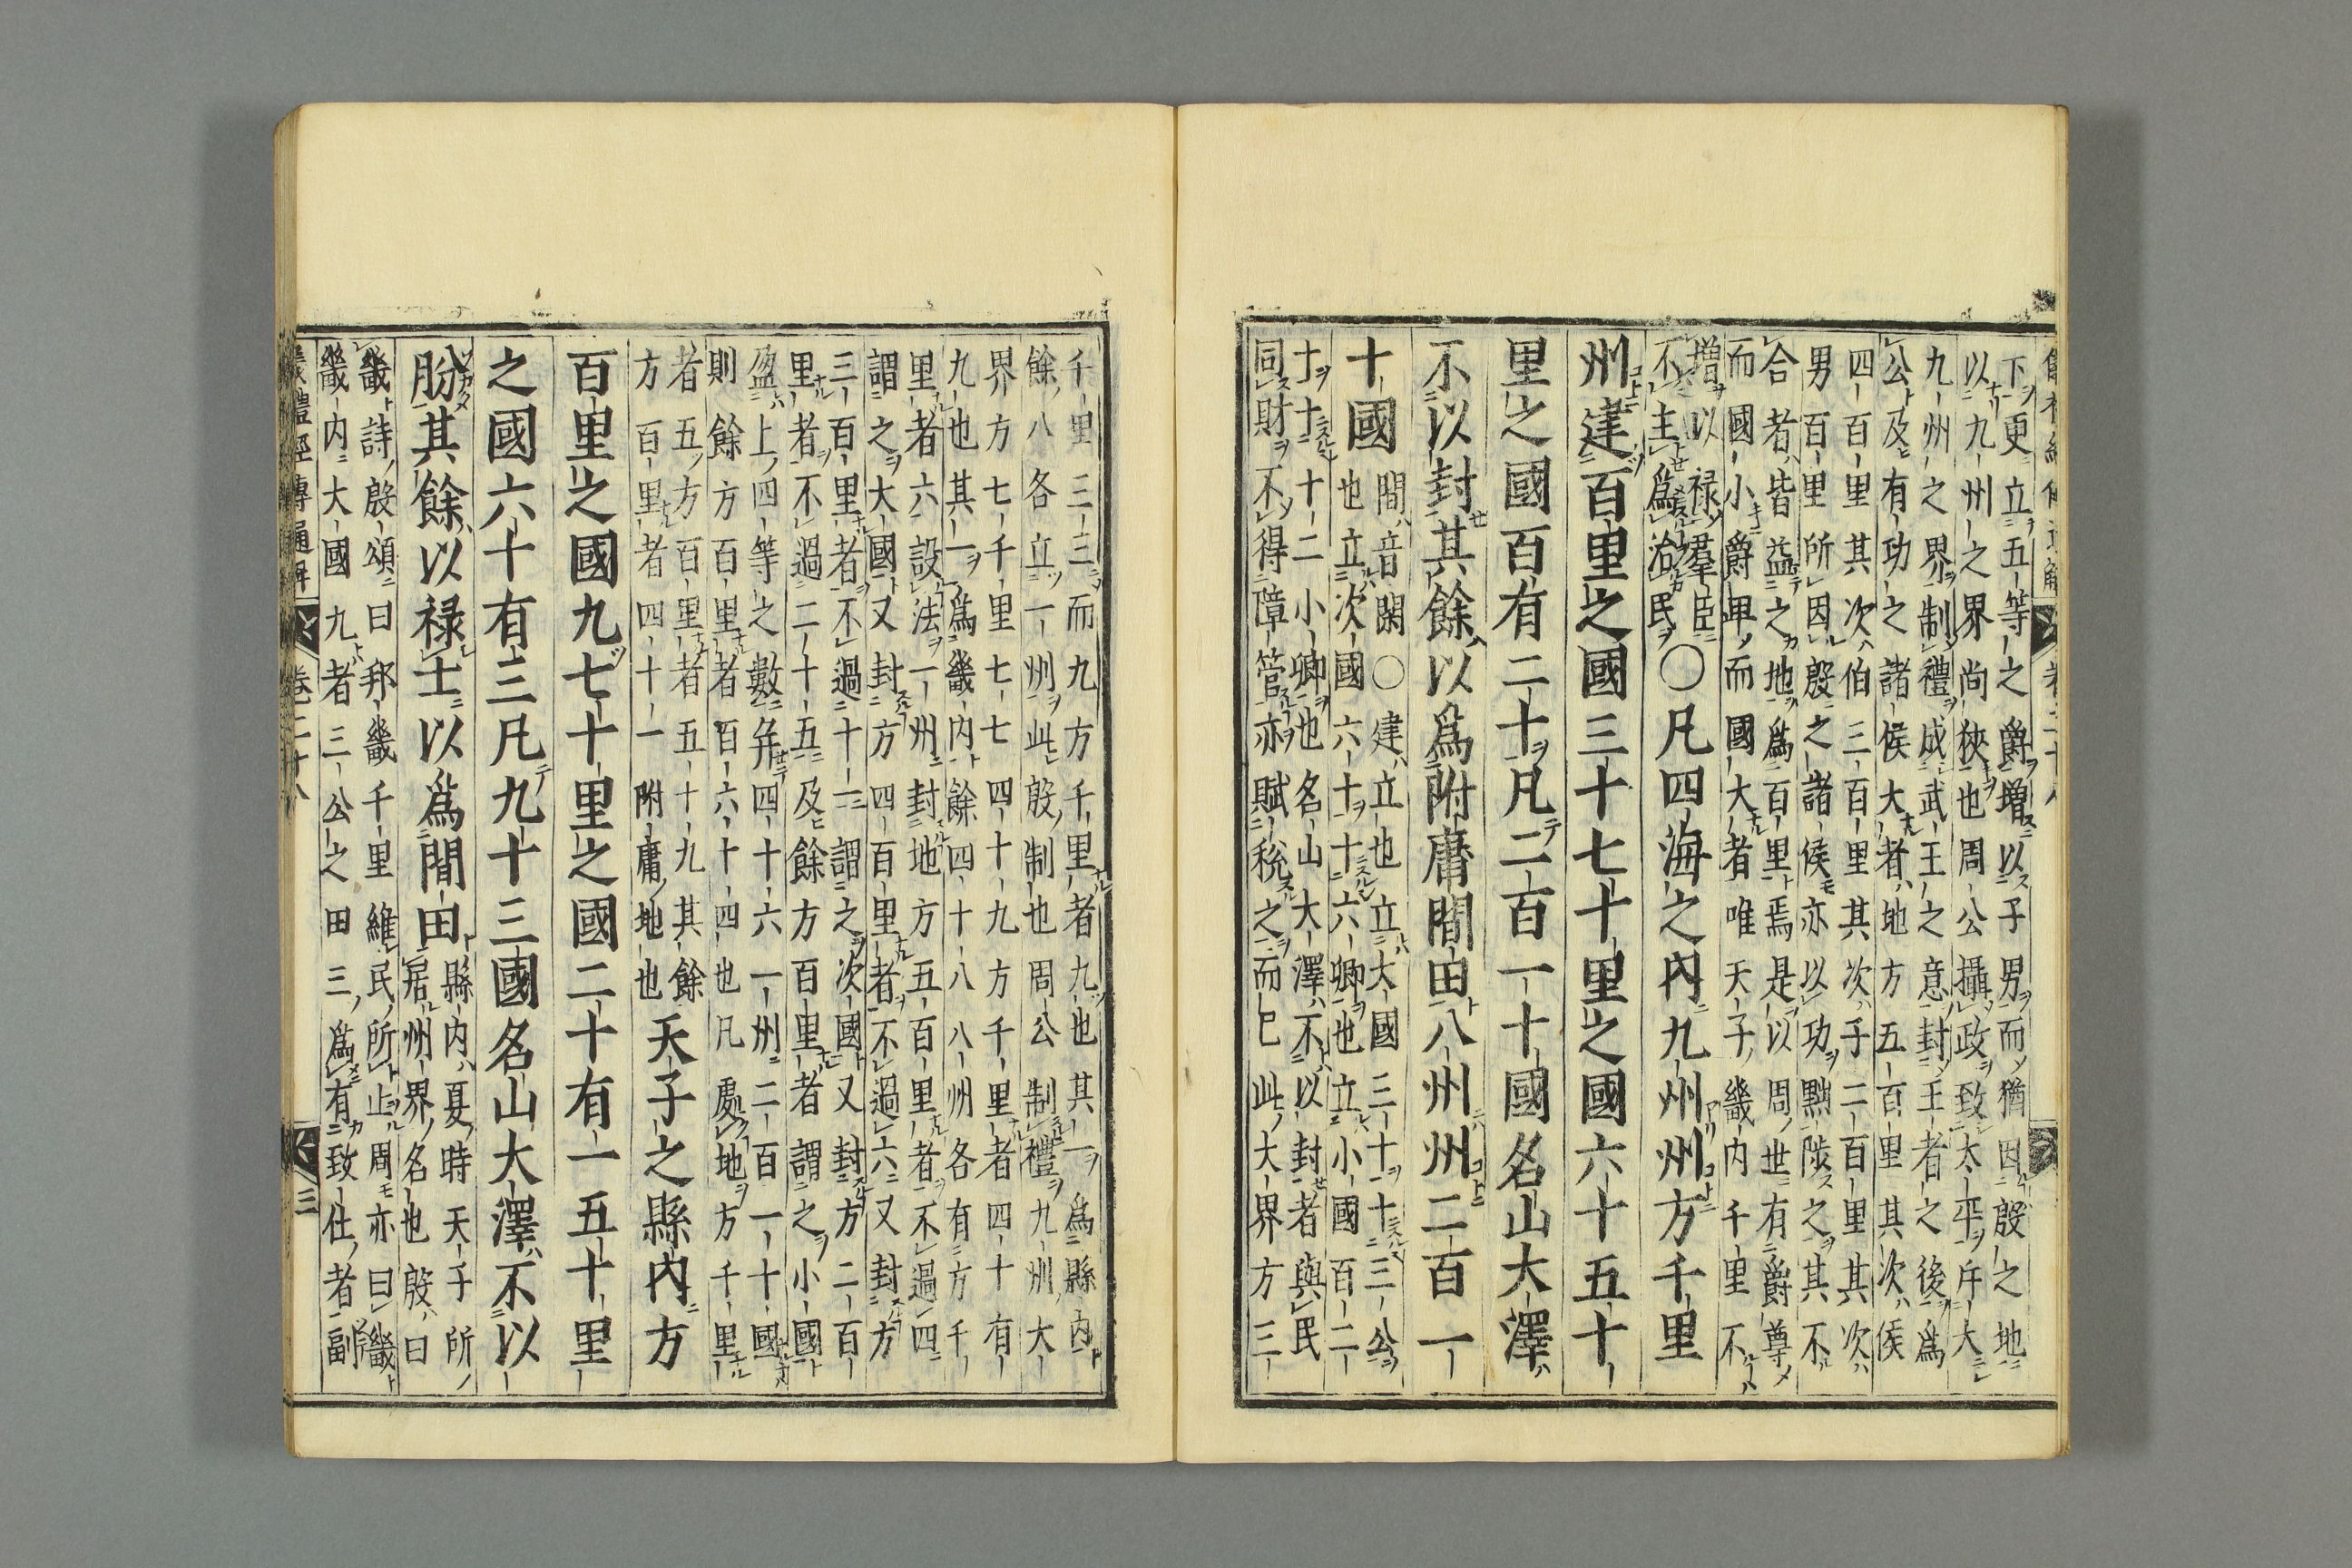 下更立五等之爵增以子男而猶因殷之地
以九州之界尚狹也周公攝政致太平斥大
九州之界制禮成武王之意封王者之後爲
公及有功之諸侯大者地方五百里其次侯
四百里其次伯三百里其次子二百里其次
男百里所因殷之諸侯亦以功黜陟之其不
合者皆益之地爲百里焉是以周世有爵尊
而國小爵卑而國大者唯天子畿内千里不
增以禄羣臣
不主爲治民〇凡四海之内九州州方千里
州建百里之國三十七十里之國六十五十
里之國百有二十凡二百一十國名山大澤
不以封其餘以爲附庸間田八州州二百一
十國
間音閑〇建立也立大國三十十三公
也立次國六十十六卿也立小國百二
十十十二小卿也名山大澤不以封者與民
同財不得障管亦賦税之而已此大界方三
千里三三而九方千里者九也其一爲縣内
餘八各立一州此殷制也周公制禮九州大
界方七千里七七四十九方千里者四十有
九也其一爲畿内餘四十八八州各有方千
里者六設法一州封地方五百里者不過四
謂之大國又封方四百里者不過六又封方
三百里者不過十一謂之次國又封方二百
里者不過二十五及餘方百里者謂之小國
盈上四等之數并四十六一州二百一十國
則餘方百里者百六十四也凡處地方千里
者五方百里者五十九其餘
方百里者四十一附庸地也
天子之縣内方
百里之國九七十里之國二十有一五十里
之國六十有三凡九十三國名山大澤不以
朌其餘以禄士以爲間田
縣内夏時天子所
居州界名也殷曰
畿詩殷頌曰邦畿千里維民所止周亦曰畿
畿内大國九者三公之田三爲有致仕者副
卷二十八
三